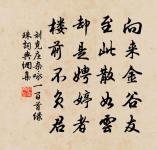 向来金谷友
至此散如云
却是娉婷者
楼前不负君
刘克庄杂咏一百首绿
珠词典网集